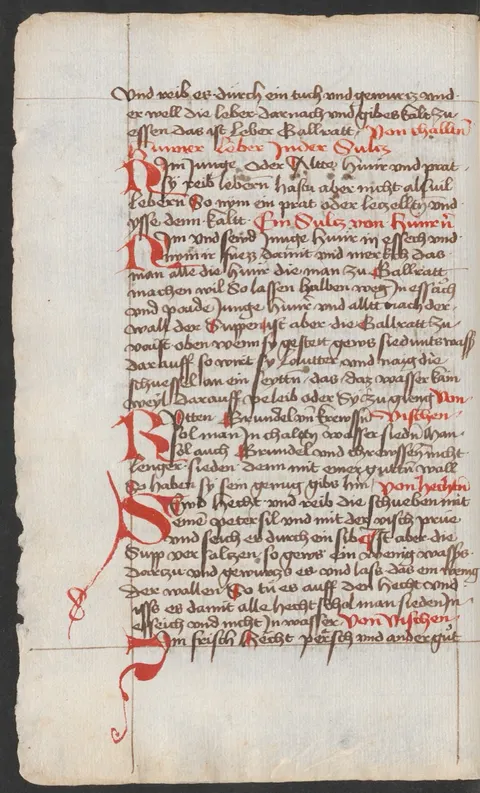 Vnd reib es durch ein tuch vnd gewurtz vnd
er well die leber darnach vnd gibes kalt zu
essen das ist leber Gallratt Von challtn
hunner leber Inder Sultz
Nim Junge oder Allte hunr vnd prat
sy reib lebern hastu aber nicht alsuil
lebern So nym ein prat oder letzelltn vnd
ysse denn kallt Ein Sultz von hunrn
Nim vnd seud Junge hunr in essech vnd
nym ir fuezz damit vnd merkh das
man alle die hunr die man zu Gallratt
machen wil So lassen halben weg In essach
vnd paide Junge hunr vnd allt nach der
wall der Suppen ist aber die Gallratt zu
vaist oben wenn sy gesteit gews sied[ ]nts wasser
darauff so wirt sy lautter vnd naig die
schuessel an ein seyttn das daz wasser kain
weyl darauff peleib oder Sy zu gieng Von
Rotten Grundel vn krewssn Vischen
Sol man In chaltn wasser siedn Man
sol auch Grundel vnd chrewssen nicht
lenger sieden denn mit einer guttn wall
So haben sy sein genug gibs hin von hechtn
Seud hecht vnd reib die schueben mit
seine petersil vnd mit der visch prue
vnd seich er durch ein sib Ist aber die
Supp versaltzen so gews Ein wenig wassers
dartzu vnd gewurtz es vnd lass das ein wenig
der wallen So tu es auff den hecht vnd
yss es damit alle hecht schol man sieden In
esseich vnd nicht In wasser Von Vischen
Nim frisch hecht persch vnd ander gut